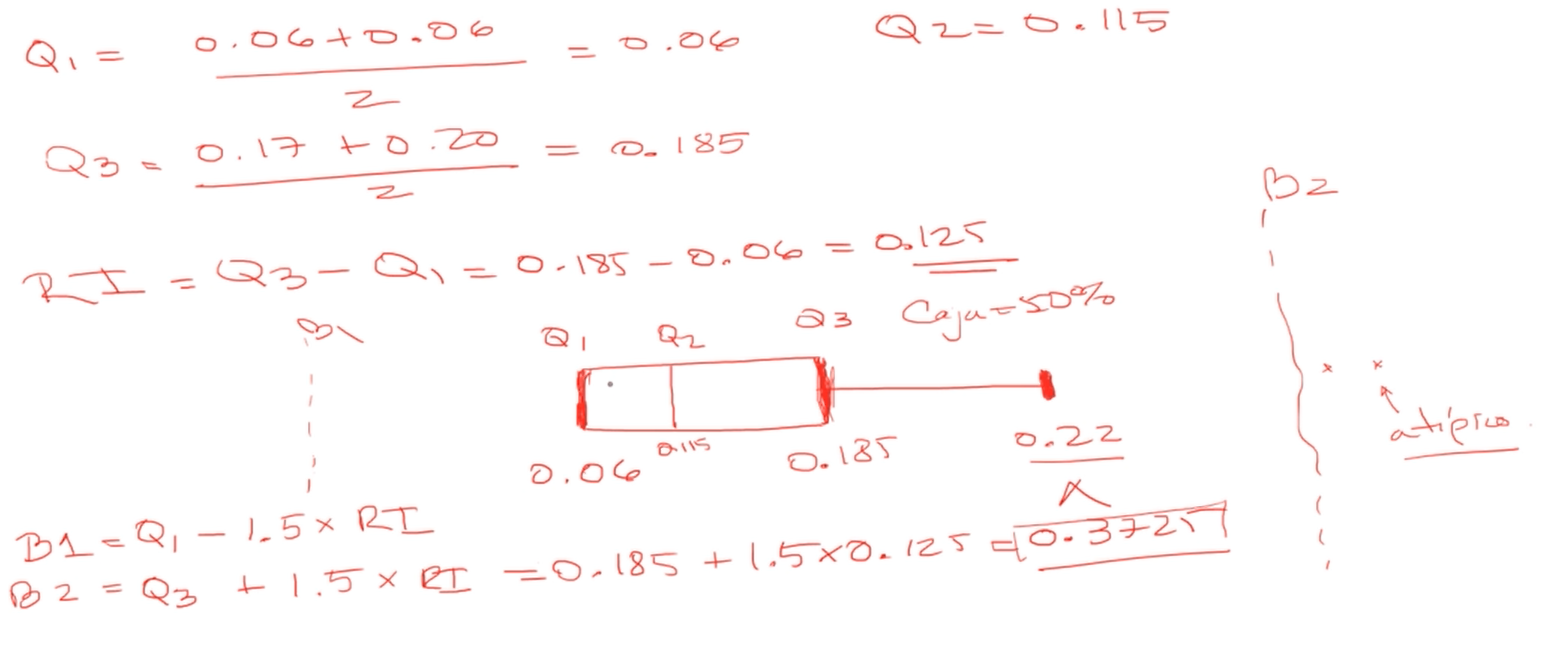 Q1 = (0.06+0.06)/2 = 0.06 Q2= 0.115
Q3 = (0.17 + 0.20)/2 = 0.185
B2
RI = Q3 - Q1 = 0.185 - 0.06 = 0.125
B1 Q1 Q2 Q3 Caja=50%
0.06 0.115 0.185 0.22 atípico
B1 = Q1 - 1.5 x RI
B2 = Q3 + 1.5 x RI = 0.185 + 1.5x0.125 = 0.3725